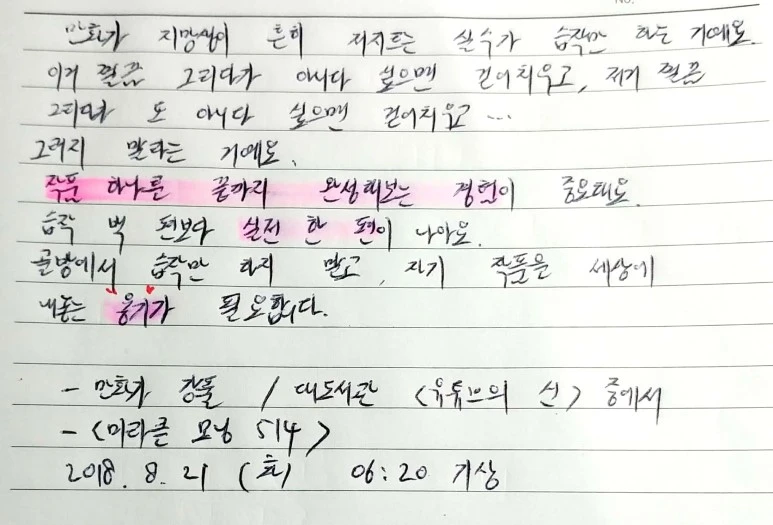 만화가 지망생이 흔히 저지르는 실수가 습작만 하는 거예요.
이거 찔끔 그리다가 아니다 싶으면 걷어치우고, 저거 찔끔
그리다 또 아니다 싶으면 걷어치우고 ...
그러지 말라는 거예요.
작품 하나를 끝까지 완성해보는 경험이 중요해요.
습작 백 편보다 실전 한 편이 나아요.
골방에서 습작만 하지 말고, 자기 작품을 세상에
내놓는 용기가 필요합니다.
- 만화가 강풀 / 대도서관 <유튜브의 신> 중에서
- <미라클 모닝 514>
2018. 8. 21 (화) 06:20 기상